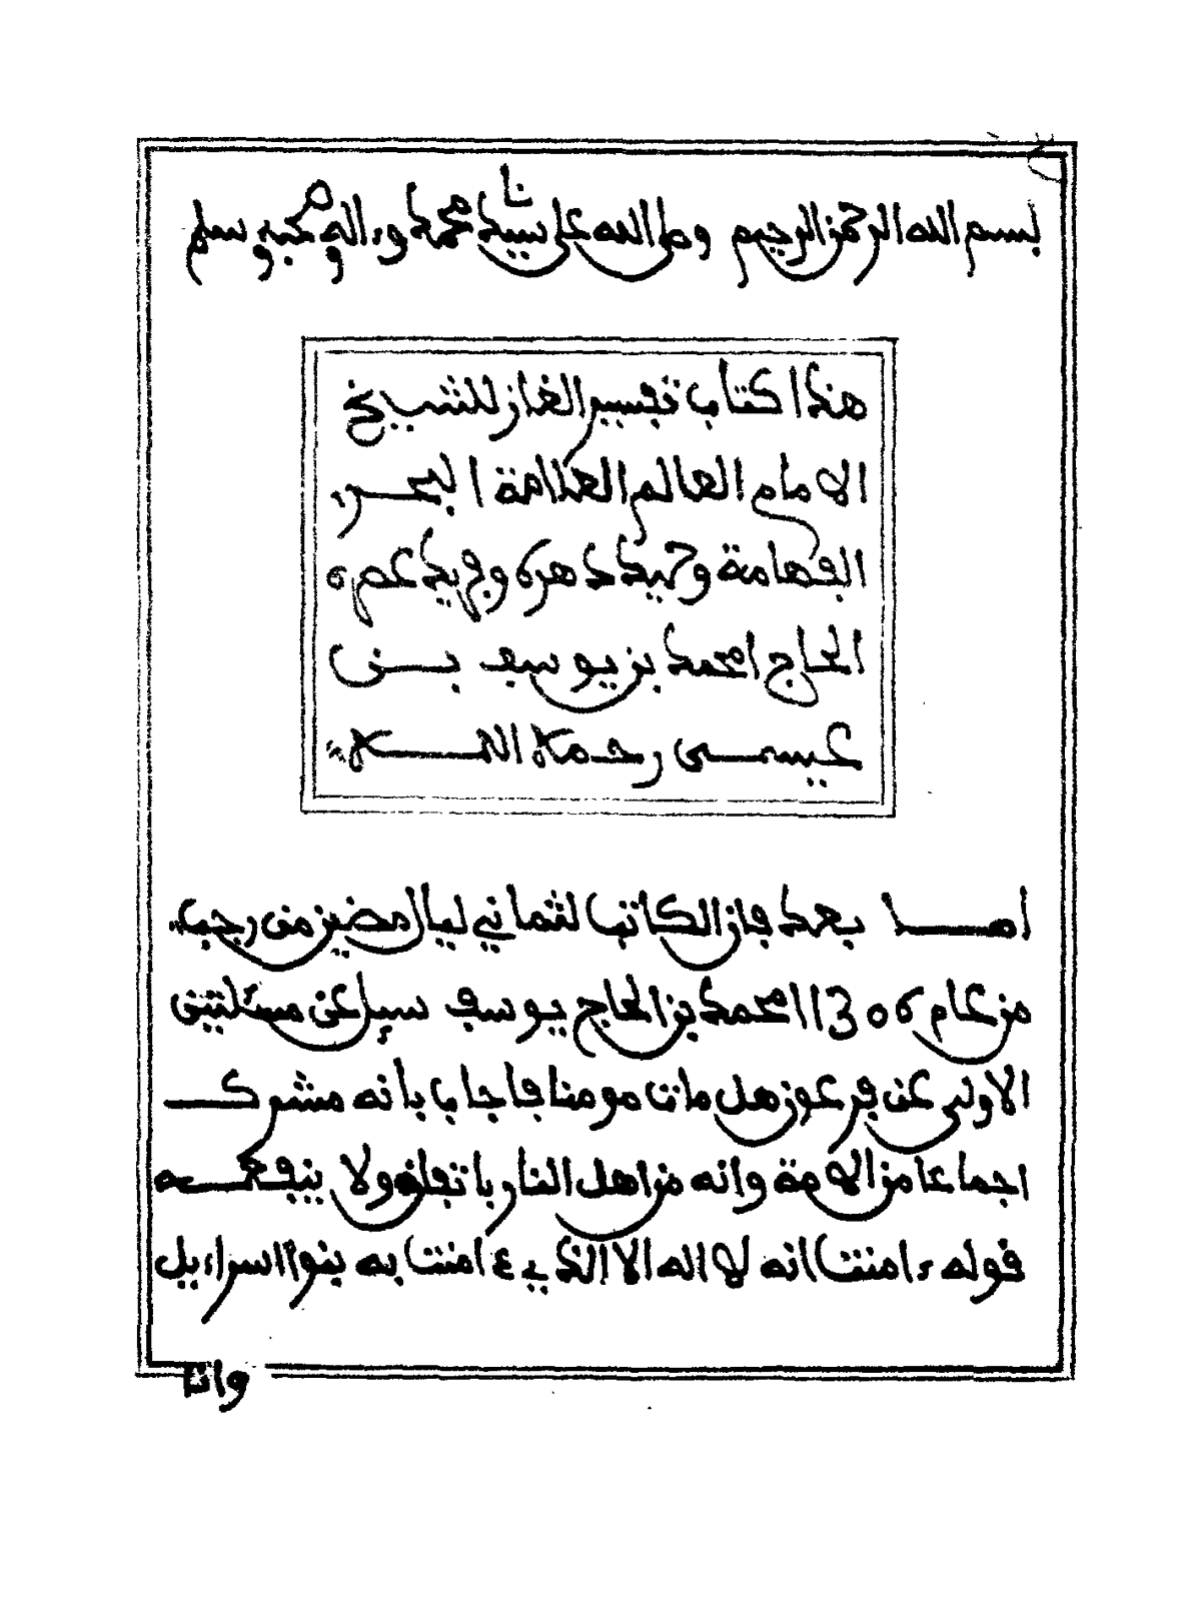 بسم الله الرحمن الرحيم وصلى الله على سيدنا محمد وءاله وصحبه وسلم
هذا كتاب تفسير الغاز للشيخ
الامام العالم العلامة البحر
الفهامة وحيد دهره وفريد عصره
الحاج امحمد بن يوسف بن
عيسى رحمه الله
اما بعد فان الكاتب لثماني ليال مضين من رجب
من عام 1306 امحمد بن الحاج يوسف سيل عن مسئلتين
الاولى عن فرعون هل مات مومنا فاجاب بانه مشرك
اجماعا من الامة وانه من اهل النار باتفاق ولا ينفعه
قوله ءامنت انه لا اله الا الذي ءامنت به بنوا اسراءيل
وانا